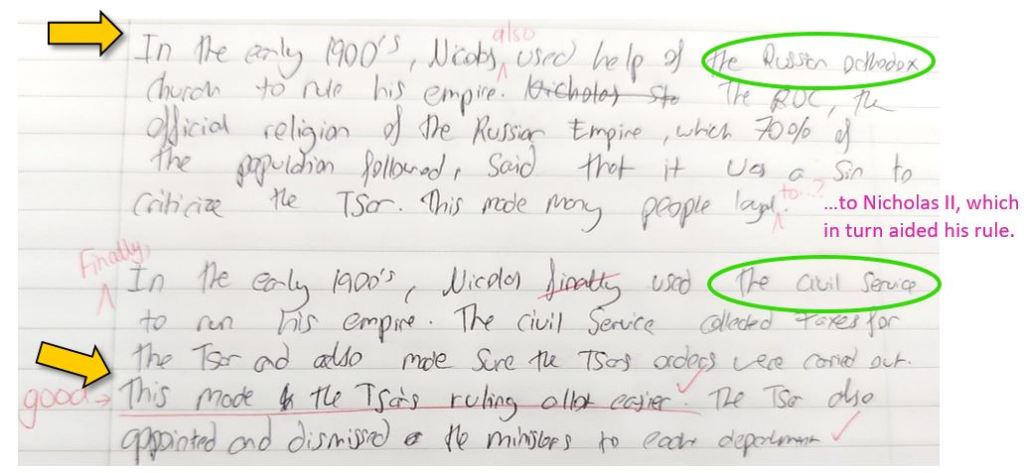 In the early 1900's, Nicolas also used help of the Russian Orthodox
church to rule his empire. Nicholas sto The ROC, the
official religion of the Russian Empire, which 70% of
the population followed, said that it was a sin to
criticize the Tsar. This made many people loyal. to...?
...to Nicholas II, which
in turn aided his rule.
Finally,
In the early 1900's, Nicolas finally used the civil service
to run his empire. The civil service collected taxes for
the Tsar and also made sure the Tsars orders were carried out.
good → This made the Tsar's ruling allot easier. The Tsar also
appointed and dismissed the ministers to each department